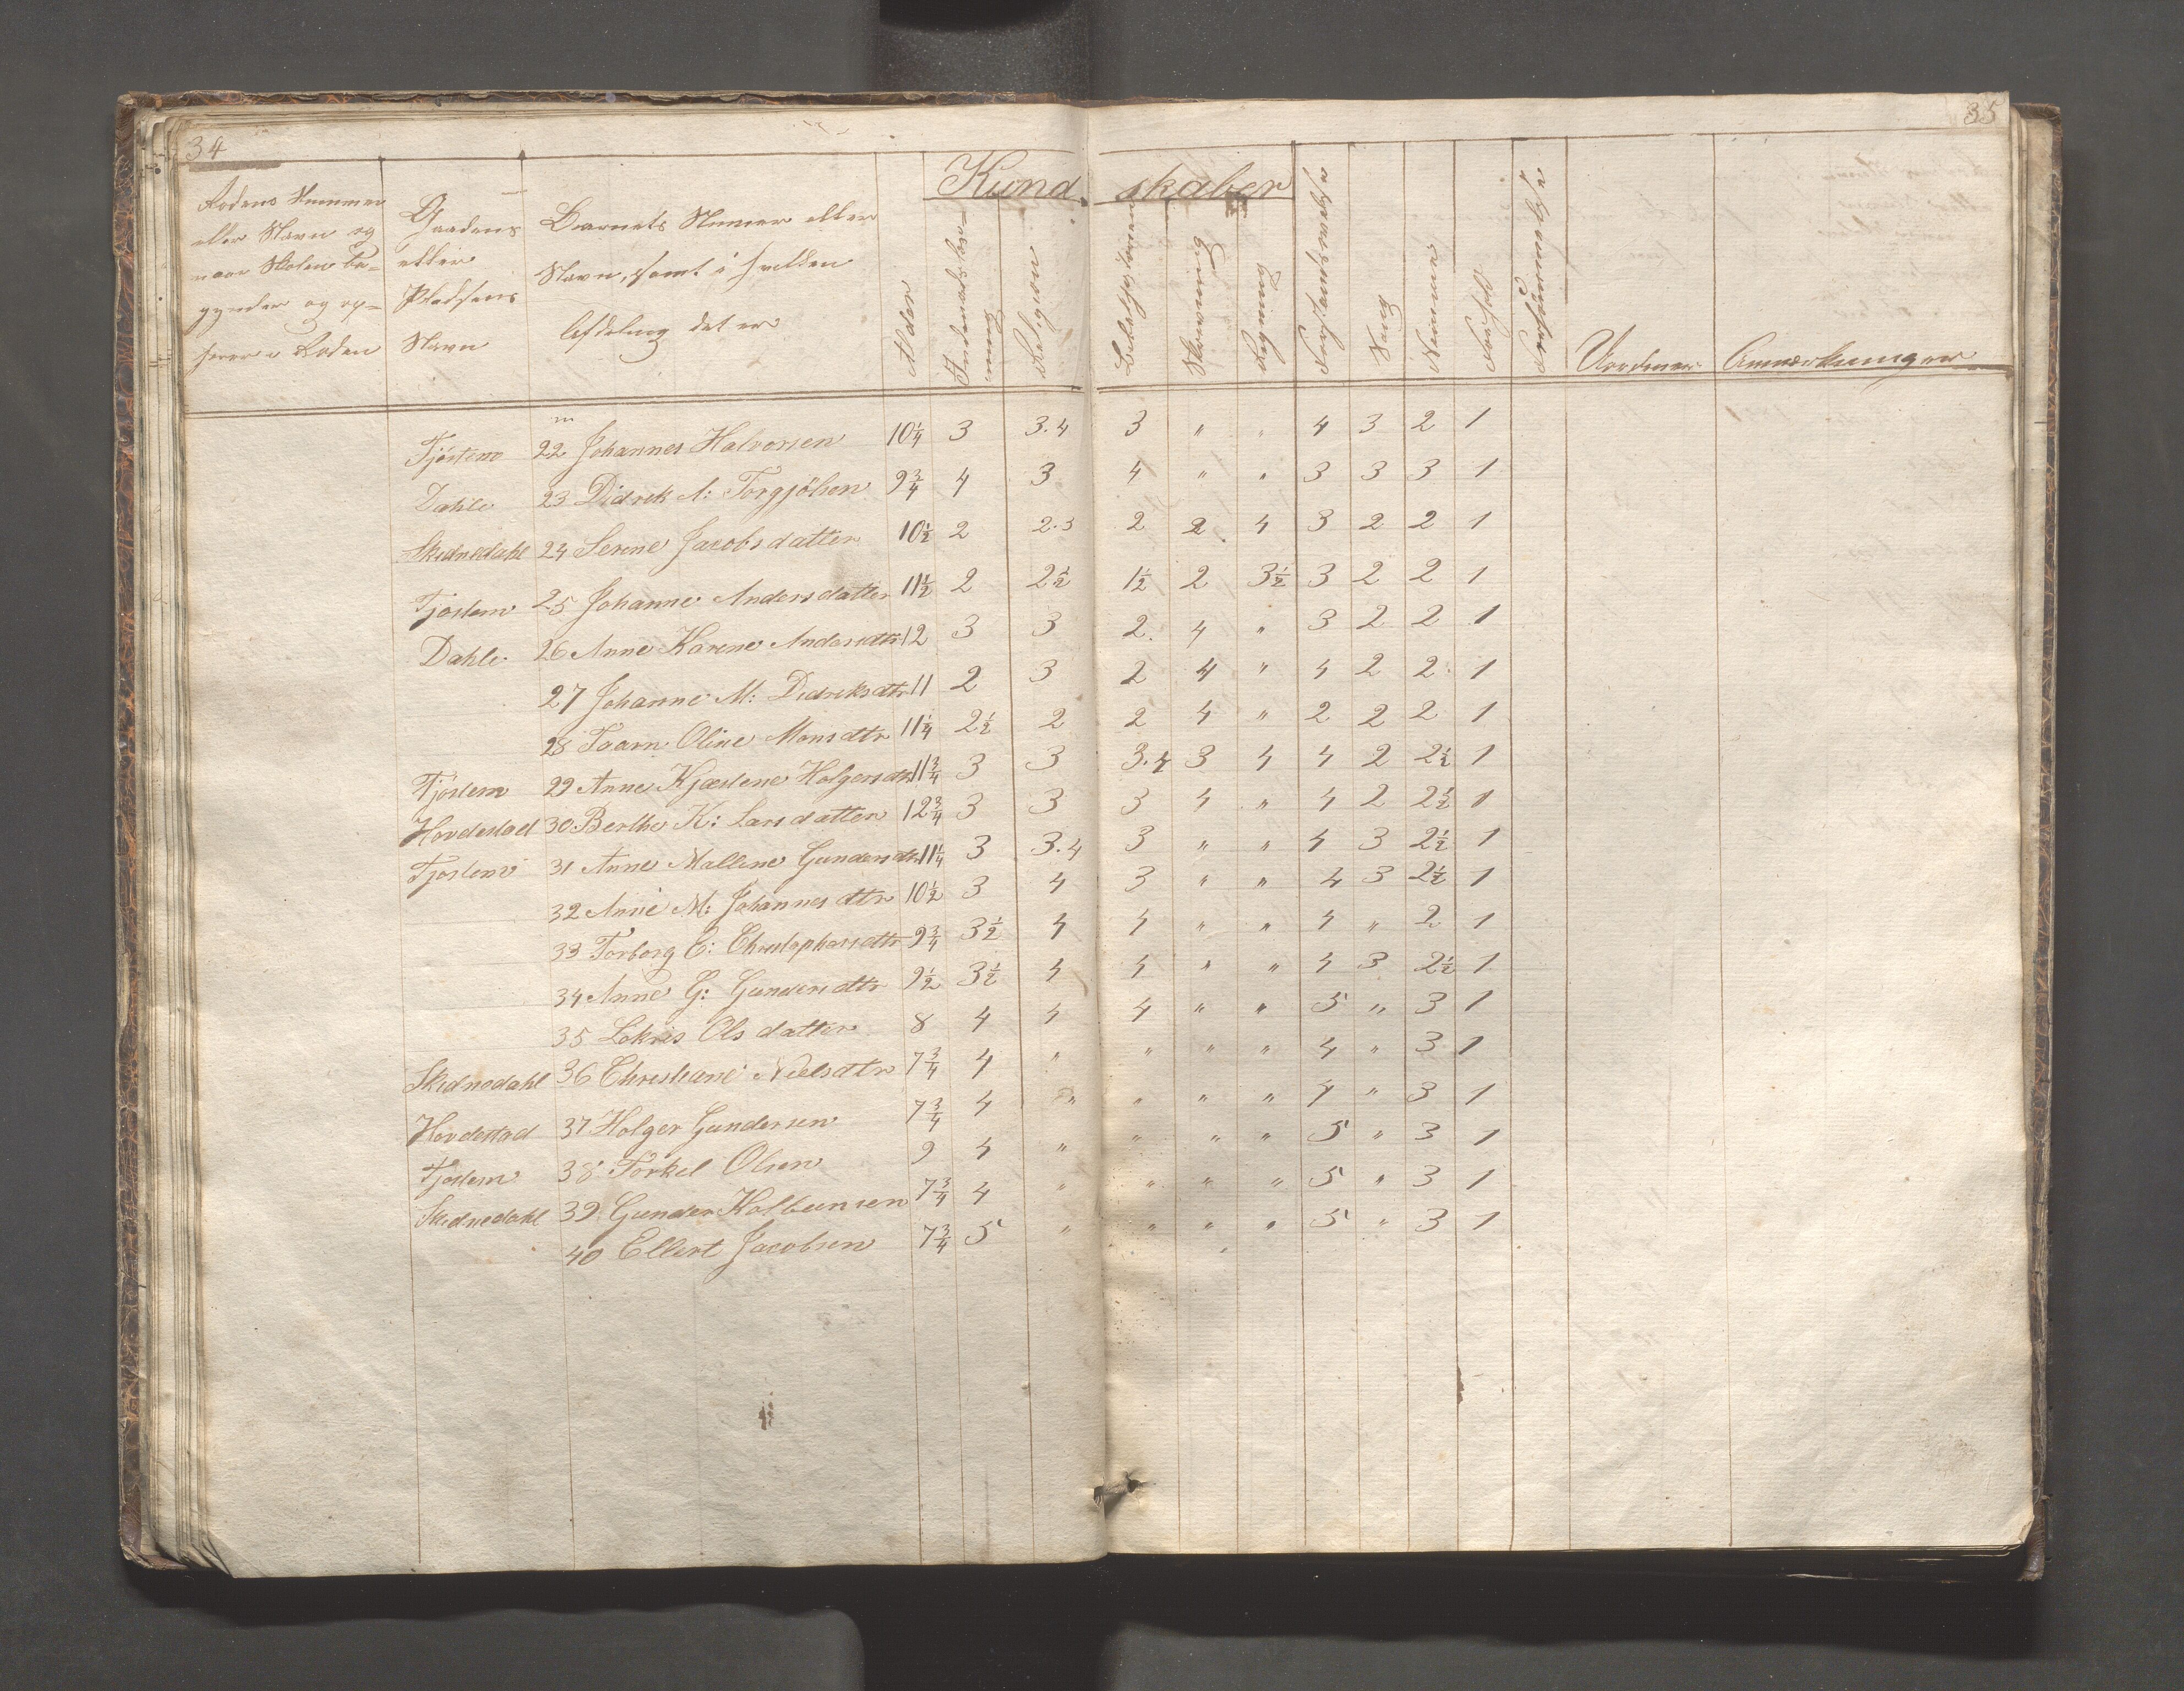 34
35
Rodens Nummer eller Navn og naar Skolen be-gynder og op-hører i Roden
Gaardens eller Pladsens Navn
Barnets Numer eller Navn, samt i hvilken Afdeling det er
Alder
Kund skaber
Indenadslæs-ning
Religion
Skrivning
Regning
Forstandsøvelse
Sang
Nemme
Forhold
Forsømmelse
Anmærkninger
Tjöstem 22 Johannes Halvorsen 10¼ 3 3.4 3 " " 4 3 2 1
Dahle 23 Didrik A: Torgjölsen 9¾ 4 3 4 " " 3 3 3 1
Skidnedahl 24 Serene Jacobsdatter 10½ 2 2.3 2 2 4 3 2 2 1
Tjöstem 25 Johanne Andersdatter 11½ 2 2½ 1½ 2 3½ 3 2 2 1
Dahle 26 Anne Karene Andersdtr 12 3 3 2 4 " 3 2 2 1
27 Johanne M: Didriksdtr 11 2 3 2 4 " 4 2 2 1
28 Oline Monsdtr 11¼ 2½ 2 2 4 " 2 2 2 1
Tjöstem 29 Anne Kjæstene Holgersdtr 11¾ 3 3 3.4 3 4 4 2 2½ 1
Hovdestad 30 Berthe K: Larsdatter 12¾ 3 3 3 4 " 4 2 2½ 1
Tjöstem 31 Anne Mallene Gundersdtr 11¼ 3 3.4 3 " " 4 3 2½ 1
32 Anne M: Johannesdtr 10½ 3 4 3 " " 4 3 2½ 1
33 Torborg C: Christophersdtr 9¾ 3½ 4 4 " " 4 " 2 1
34 Anne G: Gundersdtr 9½ 3½ 4 4 " " 4 3 2½ 1
35 Lokris Olsdatter 8 4 4 4 " " 5 " 3 1
Skidnedahl 36 Christiane Nielsdtr 7¾ 4 " " " " 4 " 3 1
Hovdestad 37 Holger Gundersen 7¾ 4 " " " " 4 " 3 1
Tjöstem 38 Torkel Olsen 9 4 " " " " 5 " 3 1
Skidnedahl 39 Gunder Kolbensen 7¾ 4 " " " " 5 " 3 1
40 Ellert Jacobsen 7¾ 5 " " " " 5 " 3 1